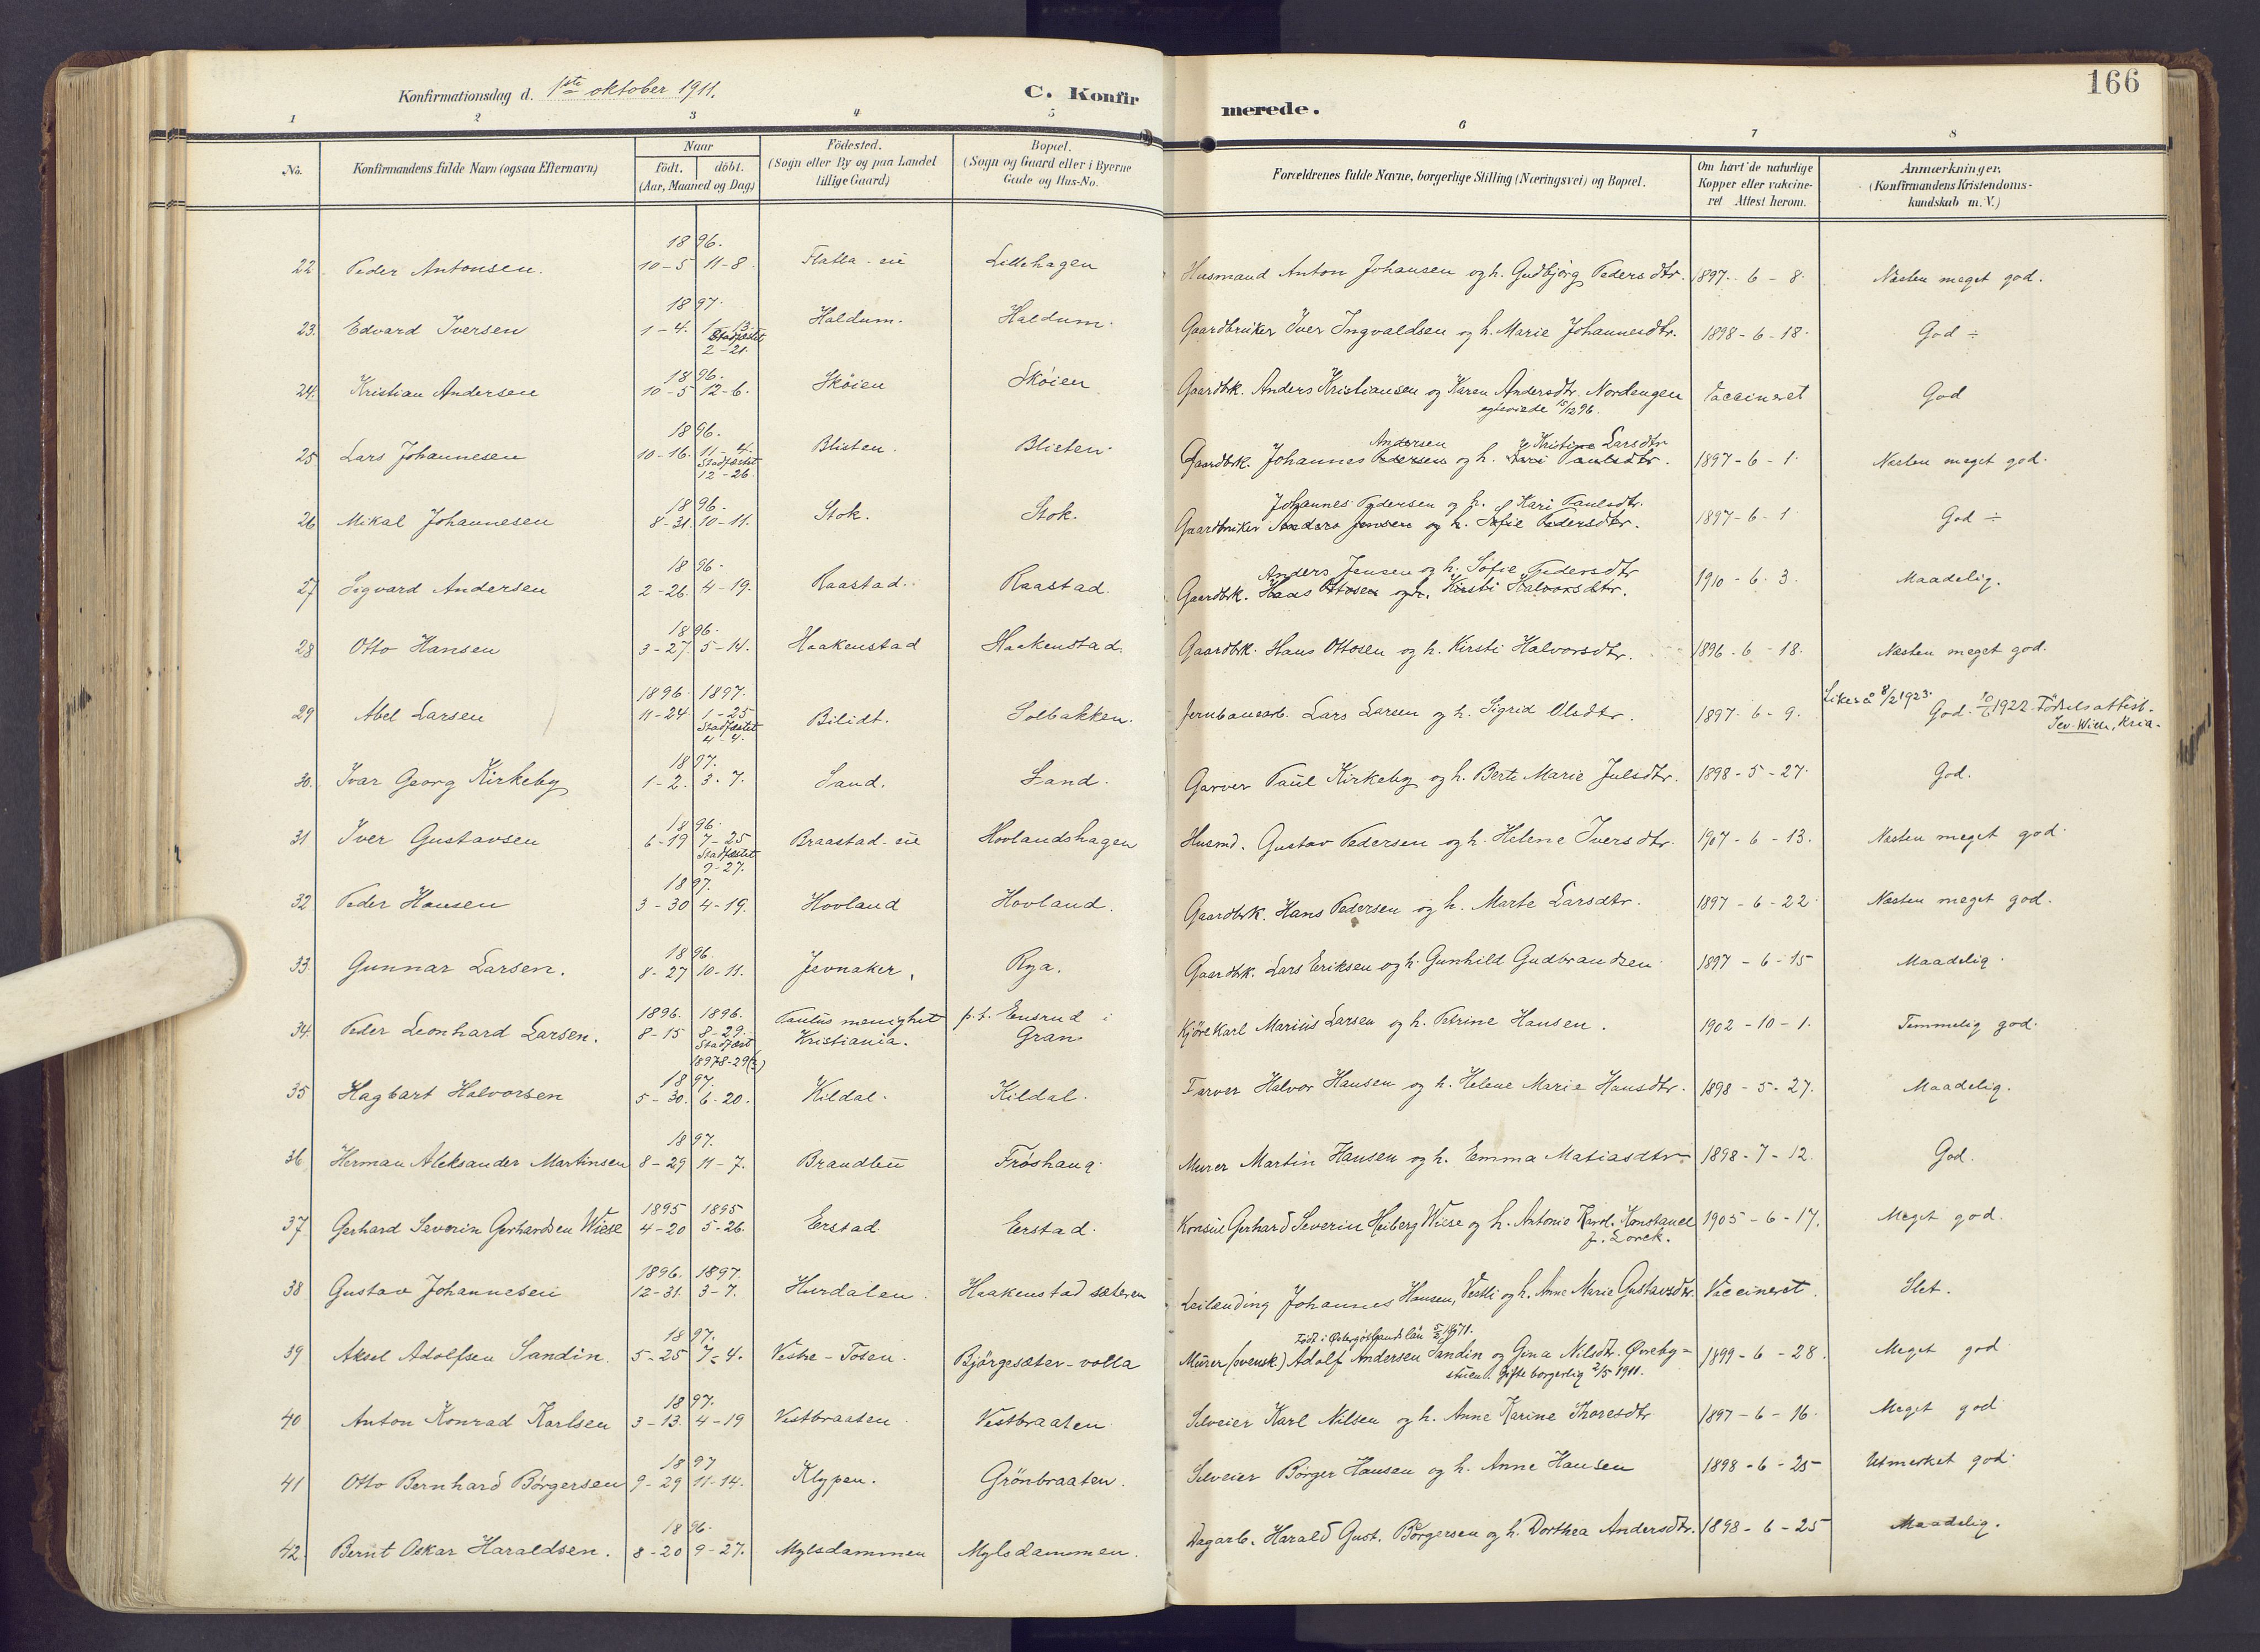 166
Konfirmationsdag d. 1ste oktober 1911. C. Konfirmerede.
1 2 3 4 5 6 7 8
No. Konfirmandens fulde Navn (ogsaa Efternavn) Naar födt. döbt. (Aar, Maaned og Dag) Födested. (Sogn eller By og paa Landet tillige Gaard) Bopæl. (Sogn og Gaard eller i Byerne Gade og Hus-No. Forældrenes fulde Navne, borgerlige Stilling (Næringsvei) og Bopæl. Om havt de naturlige Kopper eller vakcineret Attest herom. Anmærkninger. (Konfirmandens Kristendomskundskab m. V.)
1896.
22 Peder Antonsen. 10-5 11-8 Flatla-eie Lillehagen Husmand Anton Johansen og h. Gudbjörg Pedersdtr. 1897-6-8. Næsten meget god.
1897.
23. Edvard Iversen 1-4. 1-13. Stadfæstet 2-21. Haldum. Haldum. Gaardbruker Iver Ingvaldsen og h. Marie Johannesdtr. 1898-6-18. God ÷
1896.
24. Kristian Andersen 10-5 12-6. Skøien Skøien Gaardbk. Anders Kristiansen og Karen Andersdtr. Nordengen Vaccineret God
egteviede 15/12 96.
1896. Andersen Kristine Larsdtr
25 Lars Johannesen 10-16. 11-4. Stadfæstet 12-26. Blisten. Blisten. Gaardbrk. Johannes Pedersen og h. Kari Paulsdtr. 1897-6-1. Næsten meget god.
1896. Johannes Pedersen og h. Kari Paulsdtr.
26 Mikal Johannesen 8-31. 10-11. Stok. Stok. Gaardbruker Anders Jensen og h. Sofie Pedersdtr. 1897-6-1 God ÷
1896. Anders Jensen og h. Sofie Pedersdtr
27 Sigvard Andersen 2-26. 4-19. Raastad. Raastad. Gaardbk. Hans Ottosen og h. Kirsti Halvorsdtr. 1910-6-3. Maadelig.
1896.
28 Otto Hansen 3-27. 5-14. Haakenstad Haakenstad. Gaardbk. Hans Ottosen og h. Kirsti Halvorsdtr. 1896-6-18. Næsten meget god.
1896. 1897.
29 Abel Larsen 11-24 1-25 Stadfæstet 4-4. Bilidt. Solbakken. Jernbanearb. Lars Larsen og h. Sigrid Olsdtr. 1897-6-9. 8/2 1923. God. 10/6 1922 Födselsattest- Kria.
1897.
30. Ivar Georg Kirkeby 1-2. 3-7. Sand. Sand. Garver Paul Kirkeby og h. Berte Marie Julsdtr. 1898-5-27. God.
1896.
31 Iver Gustavsen 6-19 7-25 Stadfæstet 9-27. Braastad-eie Hovlandshagen Husmd. Gustav Pedersen og h. Helene Iversdtr. 1907-6-13. Næsten meget god.
1897.
32 Peder Hansen 3-30 4-19. Hovland Hovland. Gaardbrk. Hans Pedersen og h. Marte Larsdtr. 1897-6-22. Næsten meget god.
1896.
33. Gunnar Larsen. 8-27 10-11. Jevnaker, Rya. Gaardbk. Lars Eriksen og h. Gunhild Gudbrandsen 1897-6-15 Maadelig.
1896. 1896.
34. Peder Leonhard Larsen. 8-15 8-29. Stadfæst 1897 8-29 Paulus menighet Kristiania. p.t. Ensrud i Gran Kjörekarl Marius Larsen og h. Petrine Hansen. 1902-10-1. Temmelig god.
1897.
35 Hagbart Halvorsen 5-30. 6-20. Kildal. Kildal. Farver Halvor Hansen og h. Helene Marie Hansdtr. 1898-5-27. Maadelig.
1897.
36 Herman Aleksander Martinsen 8-29 11-7. Brandbu Frøshaug. Murer Martin Hansen og h. Emma Matiasdtr 1898-7-12. God.
1895 1895
37 Gerhard Severin Gerhardsen Wiese 4-20 5-26. Erstad. Erstad. Konsul Gerhard Severin Heiberg Wiese og h. Antonie Karol. Konstance f. Lorck. 1905-6-17. Meget god.
1896. 1897.
38 Gustav Johannesen 12-31. 3-7. Hurdalen. Haakenstad sæteren Leilending Johannes Hansen, Vestli og h. Anne Marie Gustavsdtr. Vaccineret. Slet.
1897. Født i Østergøtlands län
39 Aksel Adolfsen Sandin. 5-25 7-4. Vestre-Toten. Bjørgesæter-volla Murer (svensk) Adolf Andersen Sandin og Gina Nilsdtr. Øvrebystuen. Gifte borgerlig 2/5 1911. 1899-6-28. Meget god
1897.
40 Anton Konrad Karlsen 3-13. 4-19 Vestbraaten. Vestbraaten Selveier Karl Nilsen og h. Anne Karine Thoresdtr 1897-6-16. Meget god
1897
41 Otto Bernhard Börgersen 9-29 11-14. Klypen. Grönbraaten. Selveier Börger Hansen og h. Anne Hansen 1898-6-25 Utmerket god.
1896.
42. Bernt Oskar Haraldsen. 8-20 9-27. Mylsdammen Mylsdammen. Dagarb. Harald Gust. Börgersen og h. Dorthea Andersdtr. 1898-6-25 Maadelig.